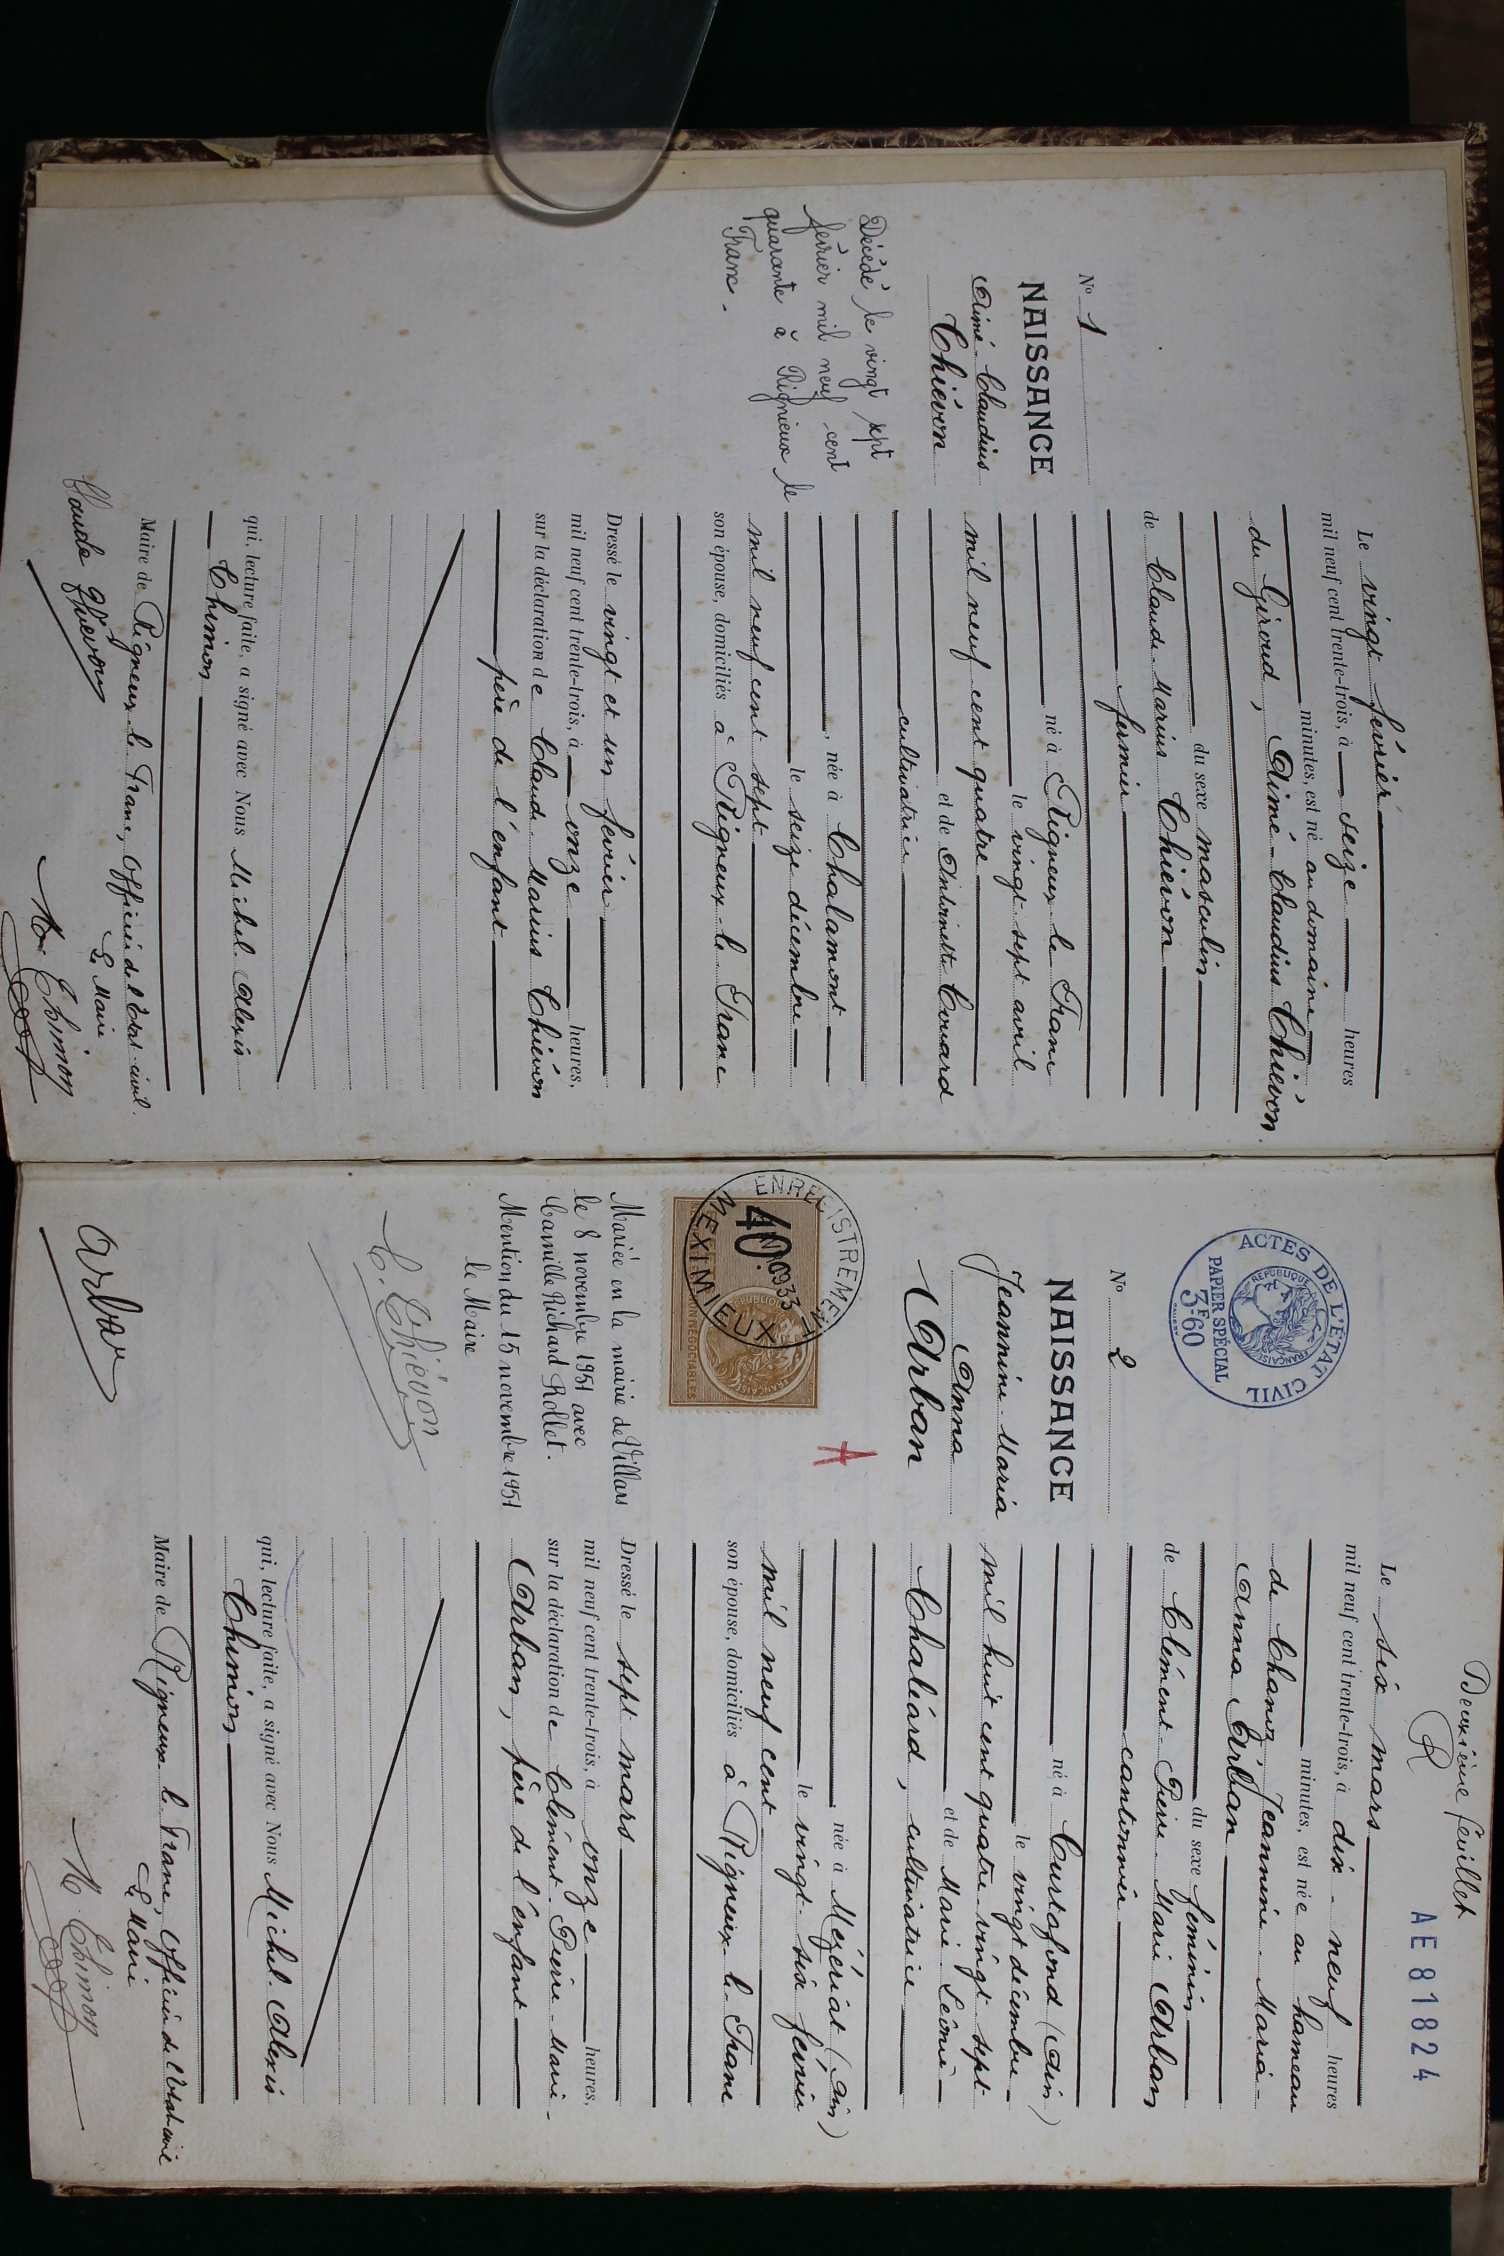 N° 1
NAISSANCE
Aimé-Claudius
Chiévon
Décédé le vingt sept
février mil neuf cent
quarante à Rignieux le
Franc.
Le vingt février
mil neuf cent trente-trois, à seize heures
minutes, est né au domaine
du Giroud, Aimé-Claudius Chiévon.
du sexe masculin
de Claude-Marius Chiévon
fermier
né à Rigneux le Franc
le vingt-sept avril
mil neuf cent quatre
et de Antoinette Couard
cultivatrice
, née à Chalamont
le seize décembre
mil neuf cent sept
son épouse, domiciliés à Rigneux-le-Franc
Dressé le vingt et un février
mil neuf cent trente-trois, à onze heures,
sur la déclaration de Claude-Marius Chiévon
père de l'enfant
qui, lecture faite, a signé avec Nous Michel-Alexis
Thimon
Maire de Rigneux le Franc, Officier de l'Etat-civil.
Le Maire
Claude Chievon
M. Thimon
Deuxième feuillet
AE 81824
ACTES DE L'ÉTAT CIVIL
RÉPUBLIQUE FRANÇAISE
PAPIER SPÉCIAL
3F60
N° 2
NAISSANCE
Jeannine-Maria
Anna
Arban
A
ENREGISTREMENT
40
0933
MEXIMIEUX
Mariée en la mairie de Villars
le 8 novembre 1951 avec
Camille Richard Rollet.
Mention du 15 novembre 1951
le Maire
C. Chiévon
Le six mars
mil neuf cent trente-trois, à dix-neuf heures
minutes, est née au hameau
de Chanoz, Jeannine-Maria-
Anna Arban
du sexe féminin
de Clément-Pierre-Marie Arban
cantonnier
né à Curtafond (Ain)
le vingt décembre
mil huit cent quatre-vingt-sept
et de Marie-Léonie-
Chaléard, cultivatrice
née à Mézériat (Ain)
le vingt-six février
mil neuf cent
son épouse, domiciliés à Rigneux-le-Franc
Dressé le sept mars
mil neuf cent trente-trois, à onze heures,
sur la déclaration de Clément-Pierre-Marie-
Arban, père de l'enfant
qui, lecture faite, a signé avec Nous Michel-Alexis
Thimon
Maire de Rigneux le Franc, Officier de l'Etat-civil
Le Maire
Arban
M. Thimon